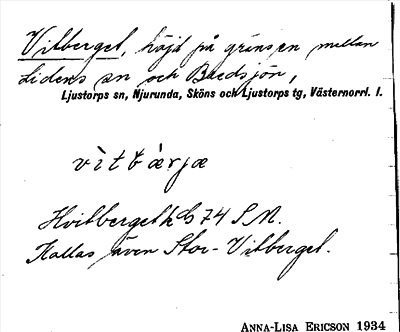 Vitberget, höjd på gränsen mellan
Lidens sn och Bredsjön,
Ljustorps sn, Njurunda, Sköns och Ljustorps tg, Västernorrl. l.
vìtbærjæ
Hvitberget k bl 74 S.N.
Kallas även Stor-Vitberget.
ANNA-LISA ERICSON 1934